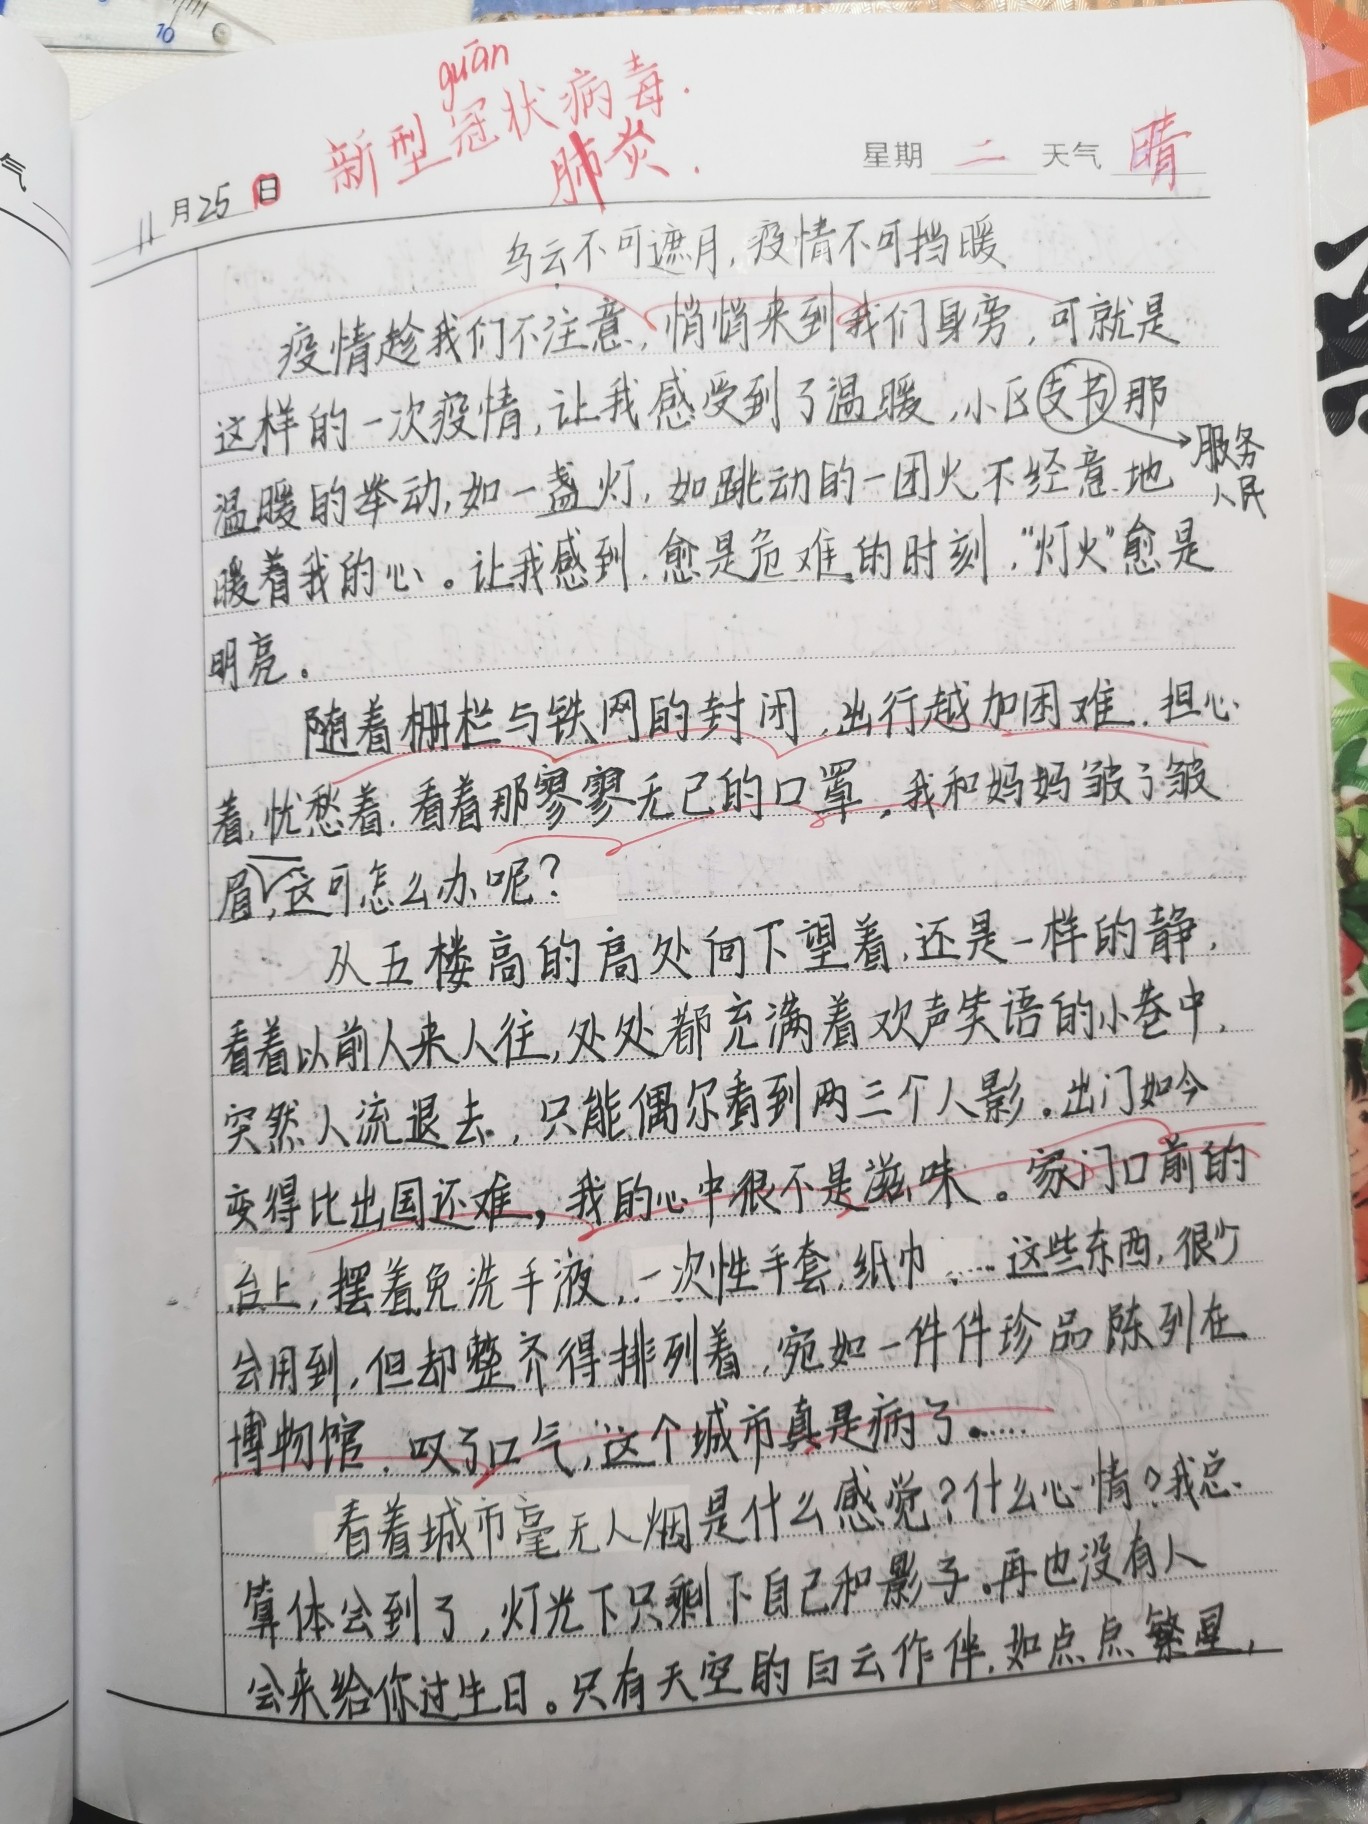 气
10
guān
新型冠状病毒.
肺炎.
11月25日
星期 二 天气 晴
乌云不可遮月,疫情不可挡暖
疫情趁我们不注意,悄悄来到我们身旁,可就是
这样的一次疫情,让我感受到了温暖,小区支书那
服务
人民
温暖的举动,如一盏灯,如跳动的一团火不经意地
暖着我的心。让我感到,愈是危难的时刻,“灯火”愈是
明亮。
随着栅栏与铁网的封闭,出行越加困难,担心
着,忧愁着.看着那寥寥无己的口罩,我和妈妈皱了皱
眉,这可怎么办呢?
从五楼高的高处向下望着,还是一样的静,
看着以前人来人往,处处都充满着欢声笑语的小巷中,
突然人流退去,只能偶尔看到两三个人影。出门如今
变得比出国还难,我的心中很不是滋味。家门口前的
台上,摆着免洗手液,一次性手套,纸巾……这些东西,很少
会用到,但却整齐得排列着,宛如一件件珍品陈列在
博物馆.叹了口气,这个城市真是病了……
看着城市毫无人烟是什么感觉?什么心情?我总
算体会到了,灯光下只剩下自己和影子。再也没有人
会来给你过生日。只有天空的白云作伴,如点点繁星,